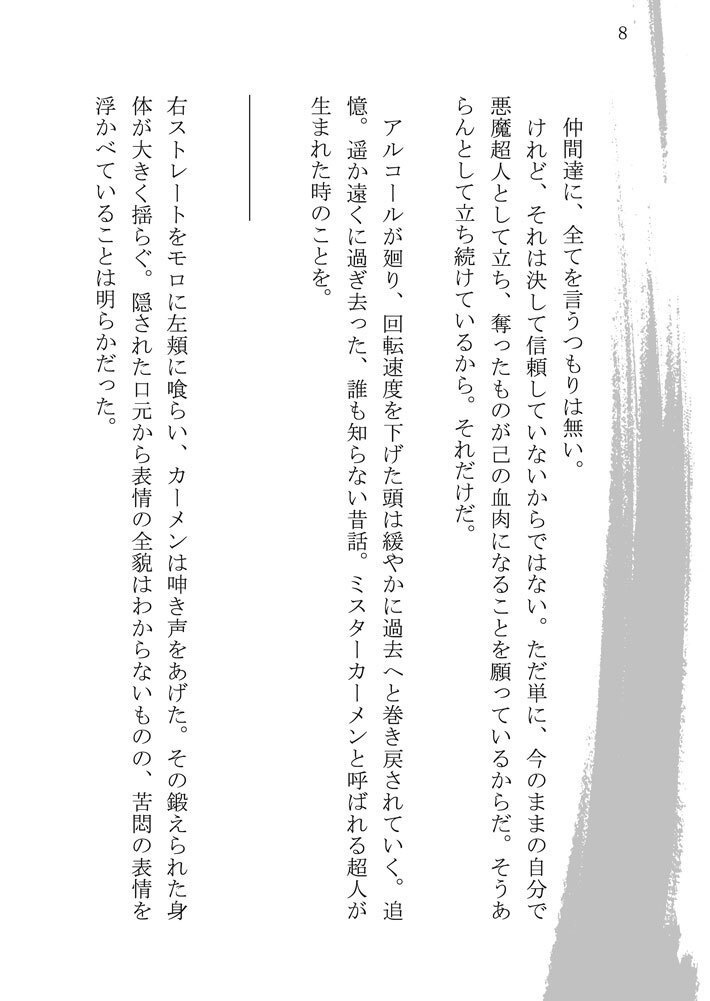 8
仲間達に、全てを言うつもりは無い。
けれど、それは決して信頼していないからではない。ただ単に、今のままの自分で
悪魔超人として立ち、奪ったものが己の血肉になることを願っているからだ。そうあ
らんとして立ち続けているから。それだけだ。
アルコールが廻り、回転速度を下げた頭は緩やかに過去へと巻き戻されていく。追
憶。遥か遠くに過ぎ去った、誰も知らない昔話。ミスターカーメンと呼ばれる超人が
生まれた時のことを。
右ストレートをモロに左頬に喰らい、カーメンは呻き声をあげた。その鍛えられた身
体が大きく揺らぐ。隠された口元から表情の全貌はわからないものの、苦悶の表情を
浮かべていることは明らかだった。